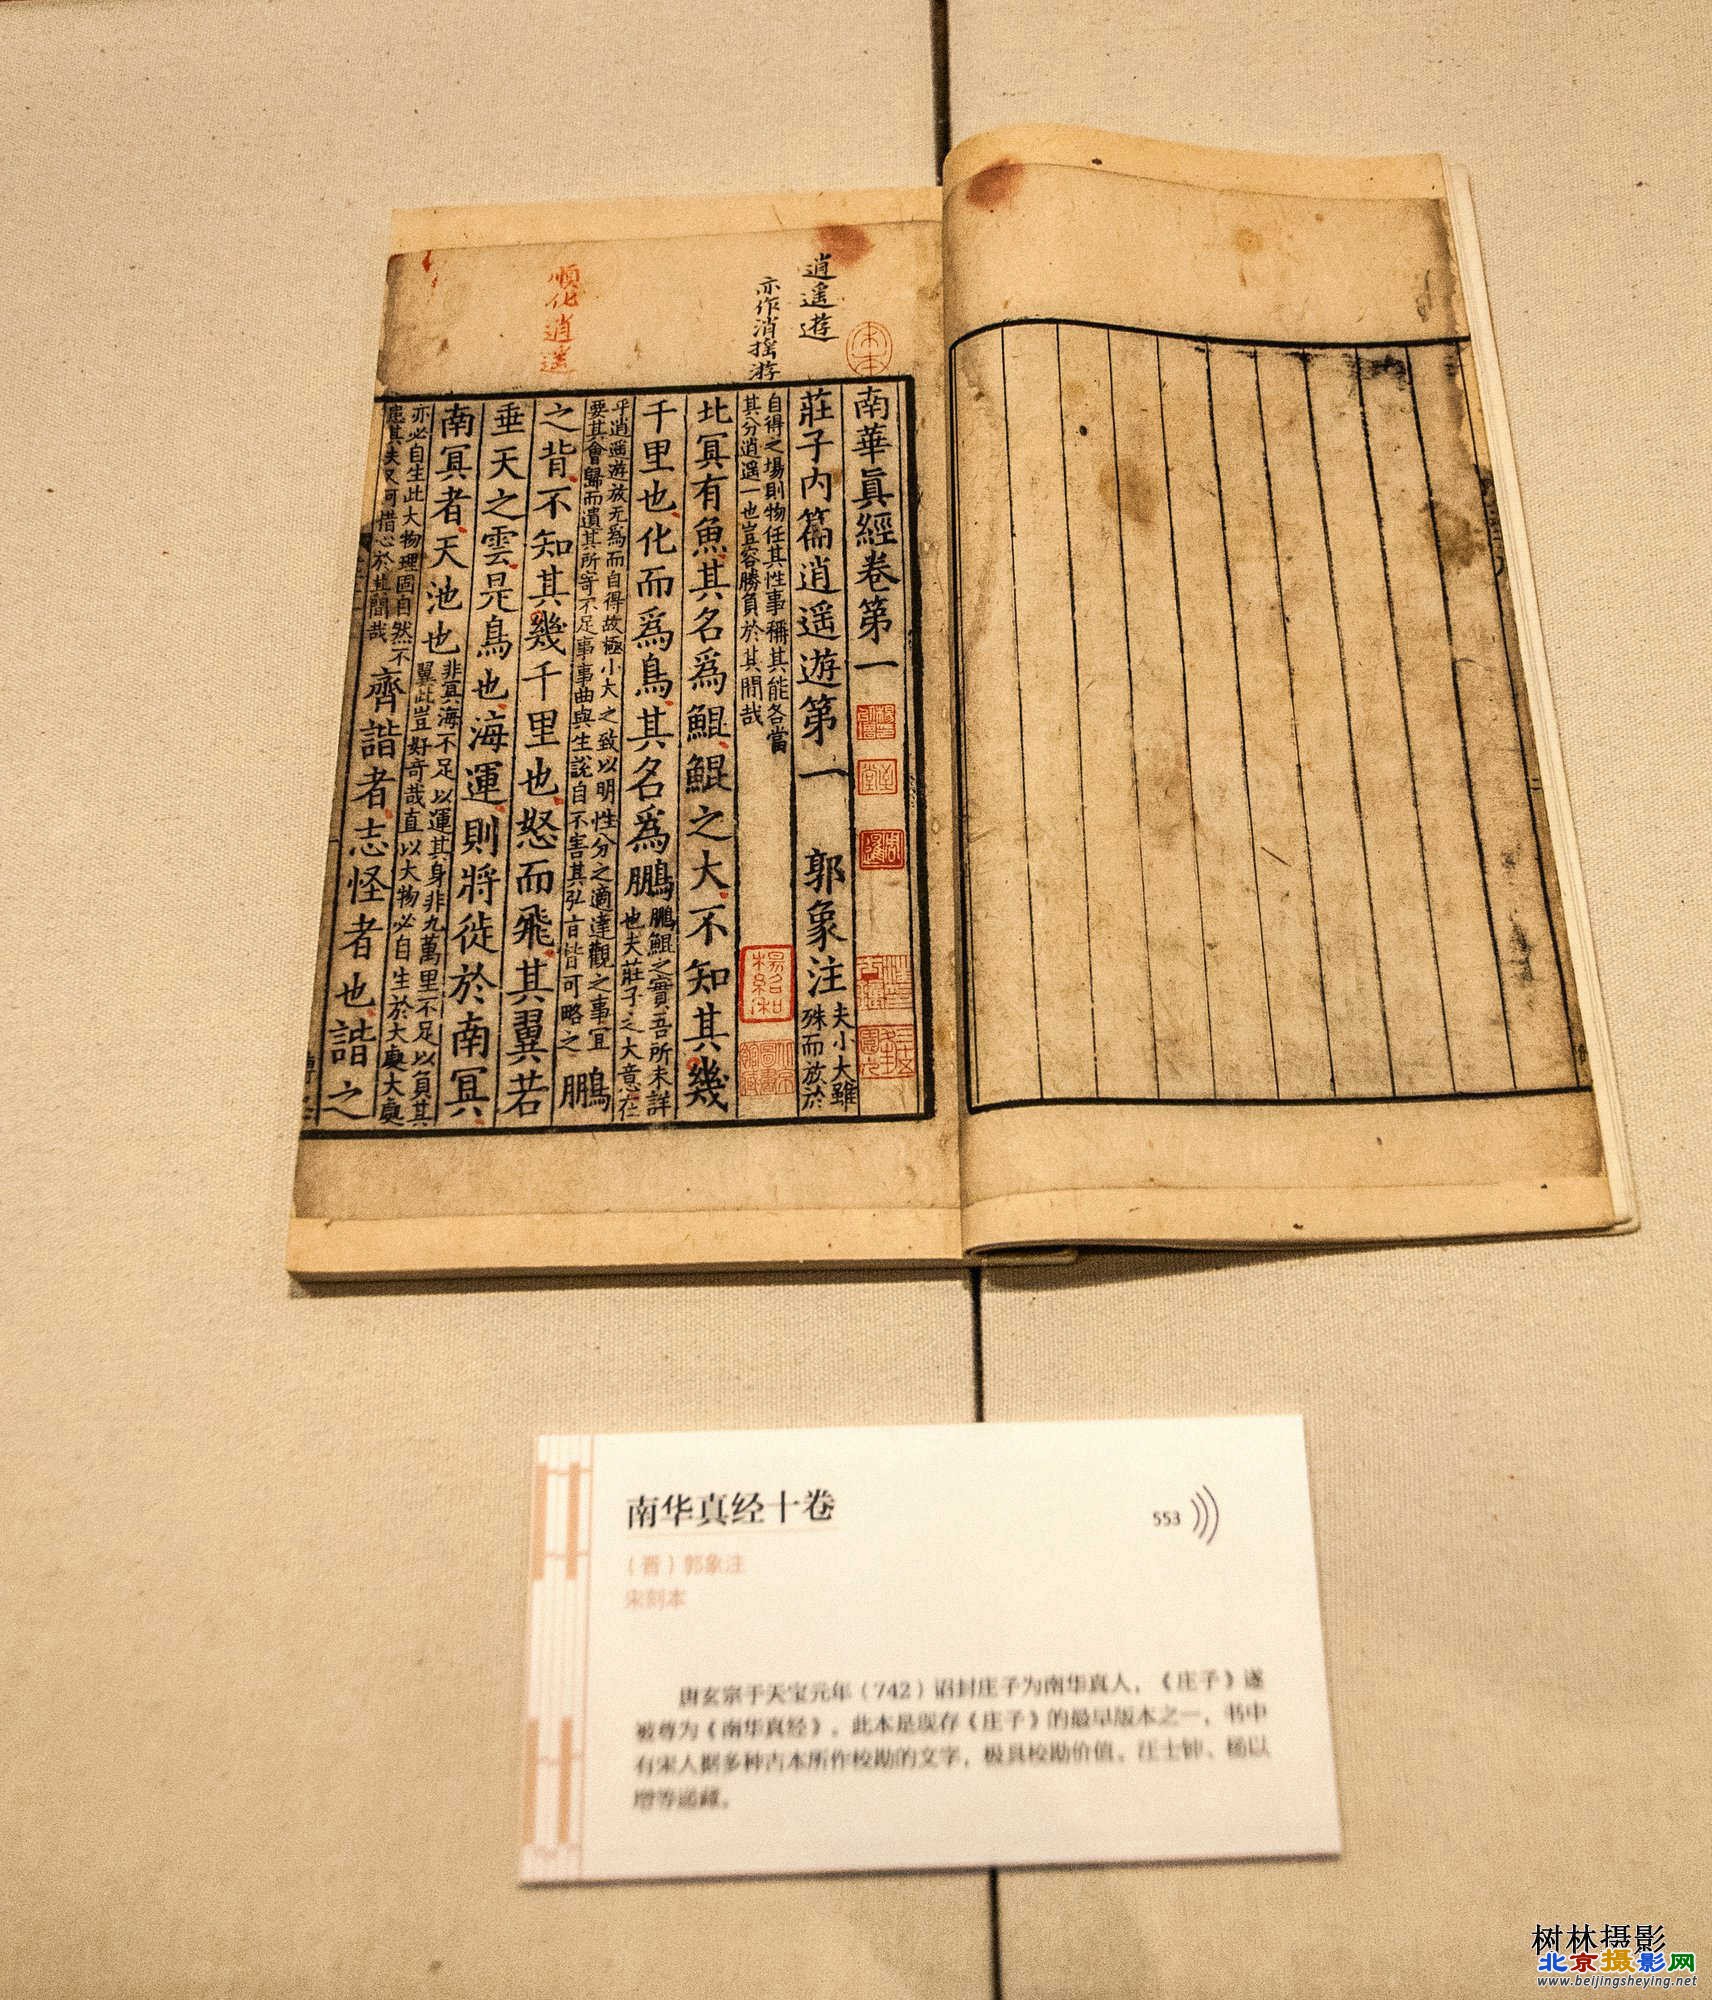 逍遥遊
亦作消搖游
順化逍遥
南華真經卷第一
莊子内篇逍遥遊第一 郭象注 夫小大雖
殊而放於
自得之場則物任其性事稱其能各當
其分逍遥一也豈容勝負於其間哉
北冥有魚其名爲鯤鯤之大不知其幾
千里也化而爲鳥其名爲鵬 鵬鯤之實吾所未詳
也夫莊子之大意在
乎逍遥遊放无爲而自得故極小大之致以明性分之適達觀之事宜
要其會歸而遺其所寄不足事事曲與生説自不害其弘旨皆可略之 鵬
之背不知其幾千里也怒而飛其翼若
垂天之雲是鳥也海運則將徙於南冥
南冥者天池也 非冥海不足以運其身非九萬里不足以負其
翼此豈好奇哉直以大物必自生於大處大處
亦必自生此大物理固自然不
患其失又何措心於其間哉 齊諧者志怪者也諧之
楊紹和
南华真经十卷
553
（晋）郭象注
宋刻本
唐玄宗于天宝元年（742）诏封庄子为南华真人，《庄子》遂
被尊为《南华真经》。此本是现存《庄子》的最早版本之一，书中
有宋人据多种古本所作校勘的文字，极具校勘价值。汪士钟、杨以
增等递藏。
树林摄影
北京摄影网
www.beijingsheying.net